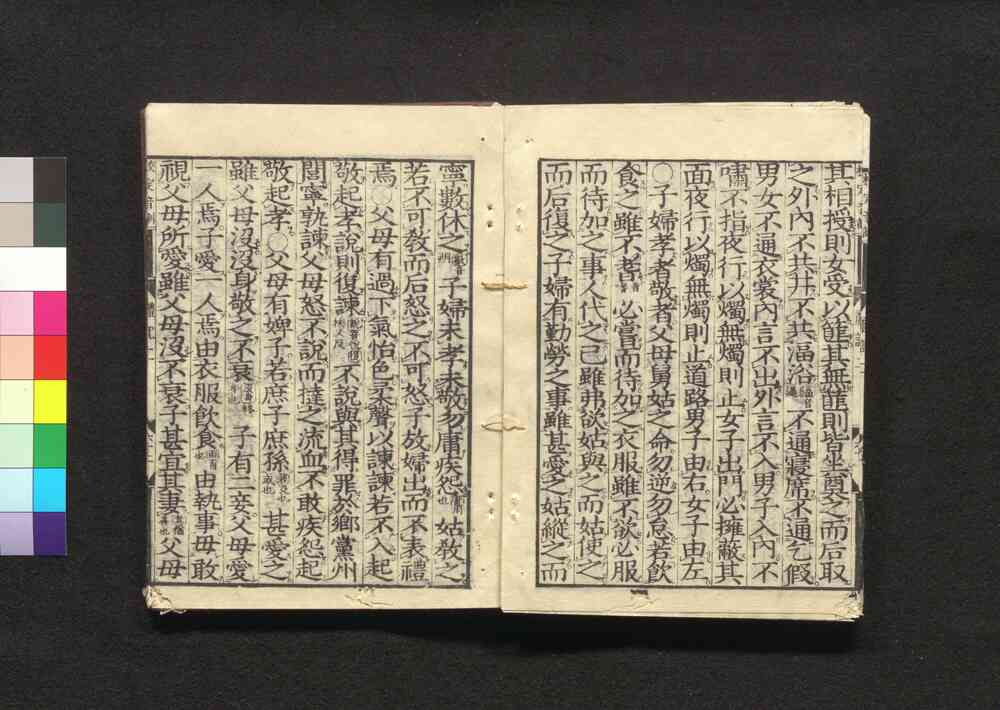 其相授則女受以篚其無篚則皆坐奠之而后取
之外內不共井不共湢浴不通寢席不通乞假
男女不通衣裳內言不出外言不入男子入內不
嘯不指夜行以燭無燭則止女子出門必擁蔽其
面夜行以燭無燭則止道路男子由右女子由左
○子婦孝者敬者父母舅姑之命勿逆勿怠若飲
食之雖不耆必嘗而待加之衣服雖不欲必服
而待加之事人代之己雖弗欲姑與之而姑使之
而后復之子婦有勤勞之事雖甚愛之姑縱之而
寧數休之子婦未孝未敬勿庸疾怨姑教之
若不可教而后怒之不可怒子放婦出而不表禮
焉○父母有過下氣怡色柔聲以諫諫若不入起
敬起孝說則復諫不說與其得罪於鄉黨州
閭寧孰諫父母怒不說而撻之流血不敢疾怨起
敬起孝○父母有婢子若庶子庶孫甚愛之
雖父母沒沒身敬之不衰子有二妾父母愛
一人焉子愛一人焉由衣服飲食由執事毋敢
視父母所愛雖父母沒不衰子甚宜其妻父母